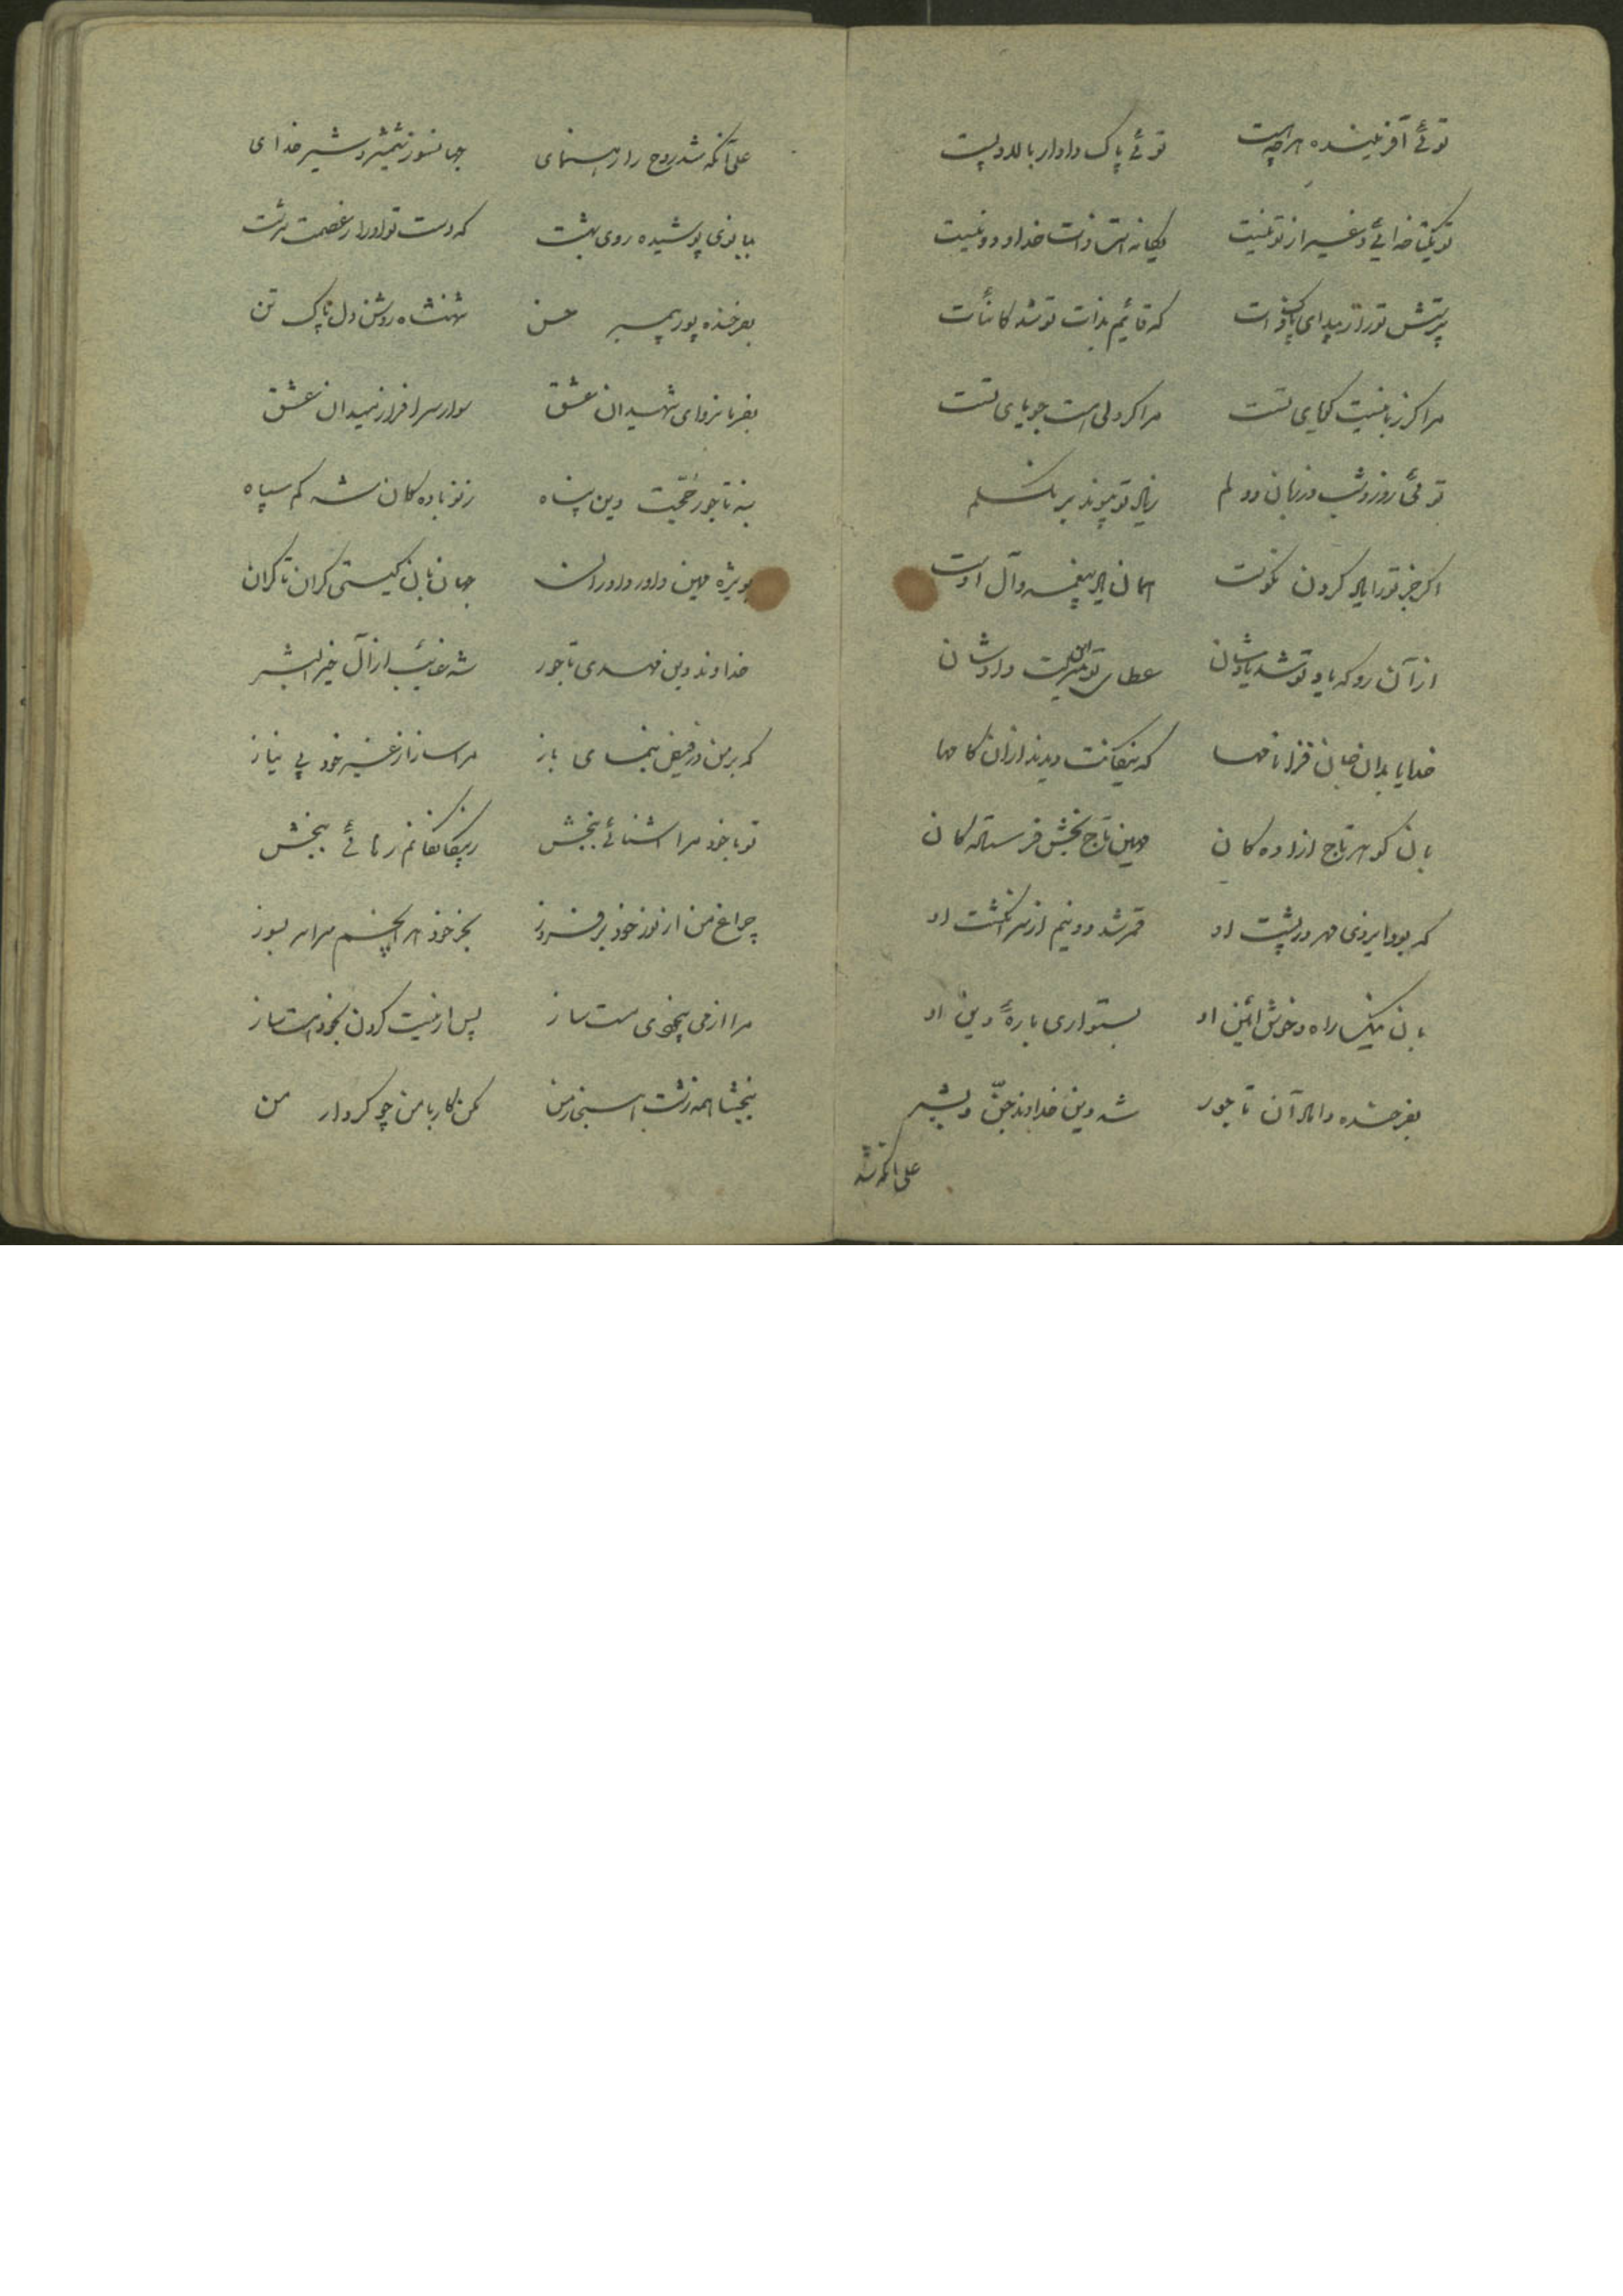 توئی آفریننده هر چه هست توئی پاک دادار بالا و پست
تو یکتا خدائی و غیر از تو نیست یگانه است ذات خدا و دو نیست
پرستش تو را زیبد ای پاک ذات که قائیم بذات تو شد کائنات
مرا گر زبانیست گویای تست مرا گر دلی است جویای تست
توئی روز و شب در زبان و دلم ز یاد تو پیوند بر نگسلم
اگر جز تو را یاد کردن نکوست همان یاد پیغمبر و آل اوست
از آن رو که یاد تو شد یادشان عطای تو این منزلت دادشان
خدایا بدان خاص فرزانه‌ها که بیگانت دیدند از آن گامها
بان گوهر تاج ازاده گان مهین تاج بخش فرستاده گان
که بود ایزدی مهر در پشت او قمر شد دو نیم از سر انگشت او
بان نیکسا راه و خوش ائین او بستواری بارهٔ دین او
بفرخنده داماد آن تاجور شه دین خداوند جنّ و بشر
علی آنکه شد
علی آنکه شد روح را رهنمای جهانسوز شمشیر و شیر خدای
ببانوی پوشیده روی بهشت که دست تو او را ز عصمت سرشت
بفرخنده پور پیمبر حسن شهنشاه روشن دل پاک تن
بفرمانروای شهیدان عشق سوار سرافراز میدان عشق
بنه تاجور حجّت دین پناه ز نوباده گان شه کم سپاه
بویژه مهین داور داوران جهانبان گیتی کران تا کران
خداوند دین مهدی تاجور شه غائب از آل خیر البشر
که بر من در فیض بنمای باز مرا ساز از غیر خود بی نیاز
تو با خود مرا اشنائی ببخش ز بیگانگانم رهائی ببخش
چراغ من از نور خود بر فروز بجز خود هر انچم سراسر بسوز
مرا از می بیخودی مست ساز پس از نیست کردن بخود هست ساز
ببخشا همه زشت هنجار من مکن کار با من چو کردار من